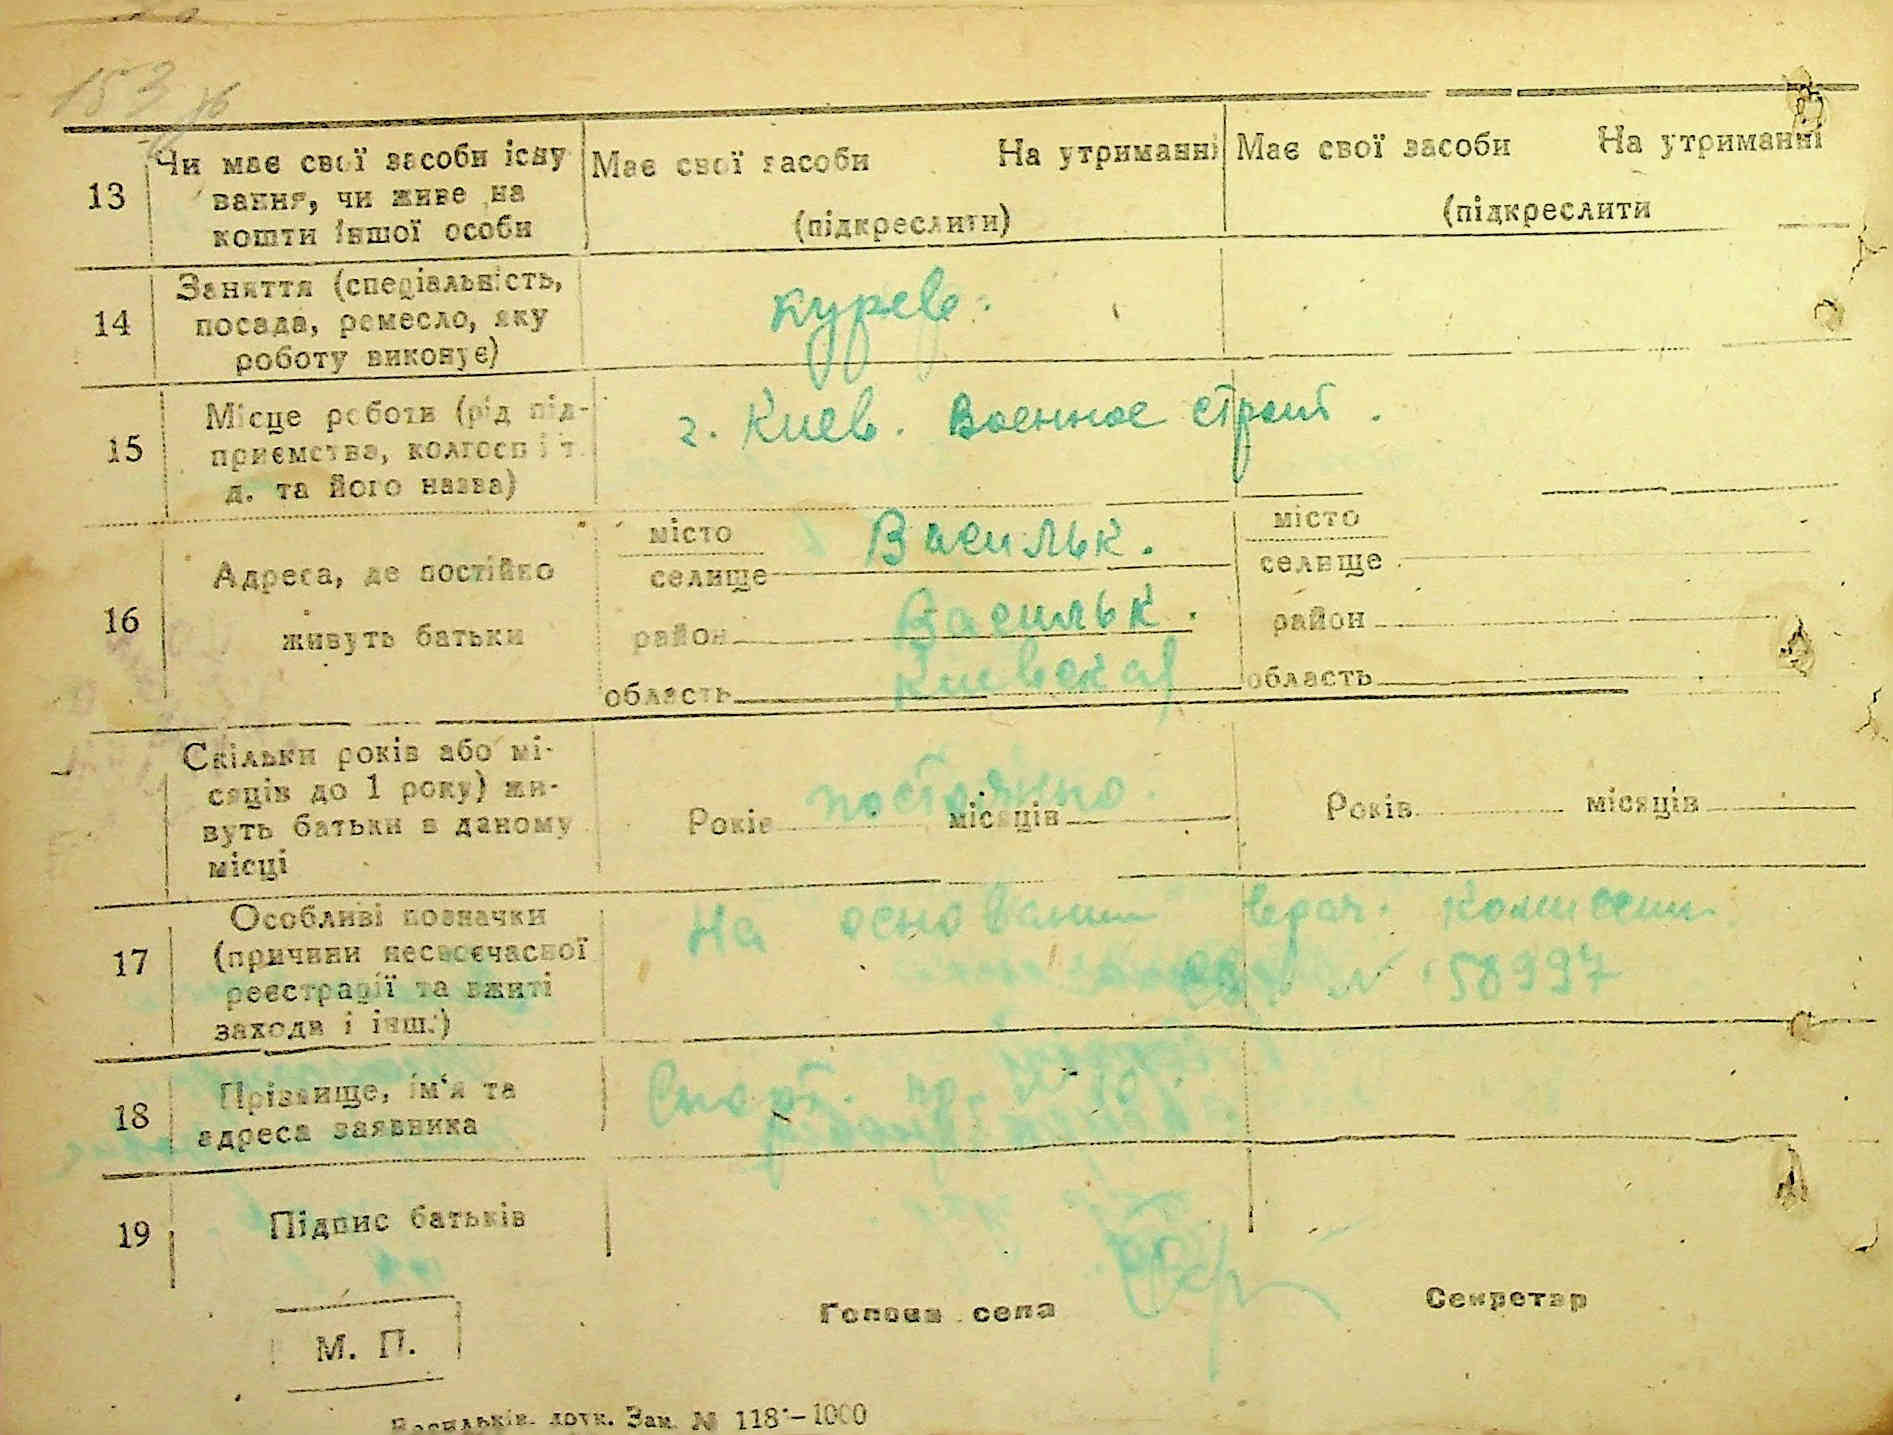 153
13 Чи має свої засоби існу Має свої засоби На утриманні Має свої засоби На утриманні
вання, чи живе на
кошти іншої особи (підкреслити) (підкреслити
Заняття (спеціальність,
14 посада, ремесло, яку
роботу виконує)
Місце роботи (рід під- г. Киев. Военное строит.
15 приємства, колгосп і т.
д. та його назва)
місто Васильк. місто
Адреса, де постійно селище селище
16 район Васильк. район
живуть батьки
область Киевская область
Скільки років або мі-
сяців до 1 року) жи- постоянно.
вуть батьки в даному Років місяців Років місяців
місці
Особливі позначки На основании врач. комиссии
17 (причини несвоєчасної
реєстрації та вжиті № 58997
заходи і інш.)
Прізвище, ім'я та
18
адреса заявника
19 Підпис батьків
Голова села Секретар
М. П.
Васильків. Зам. № 118 -1000